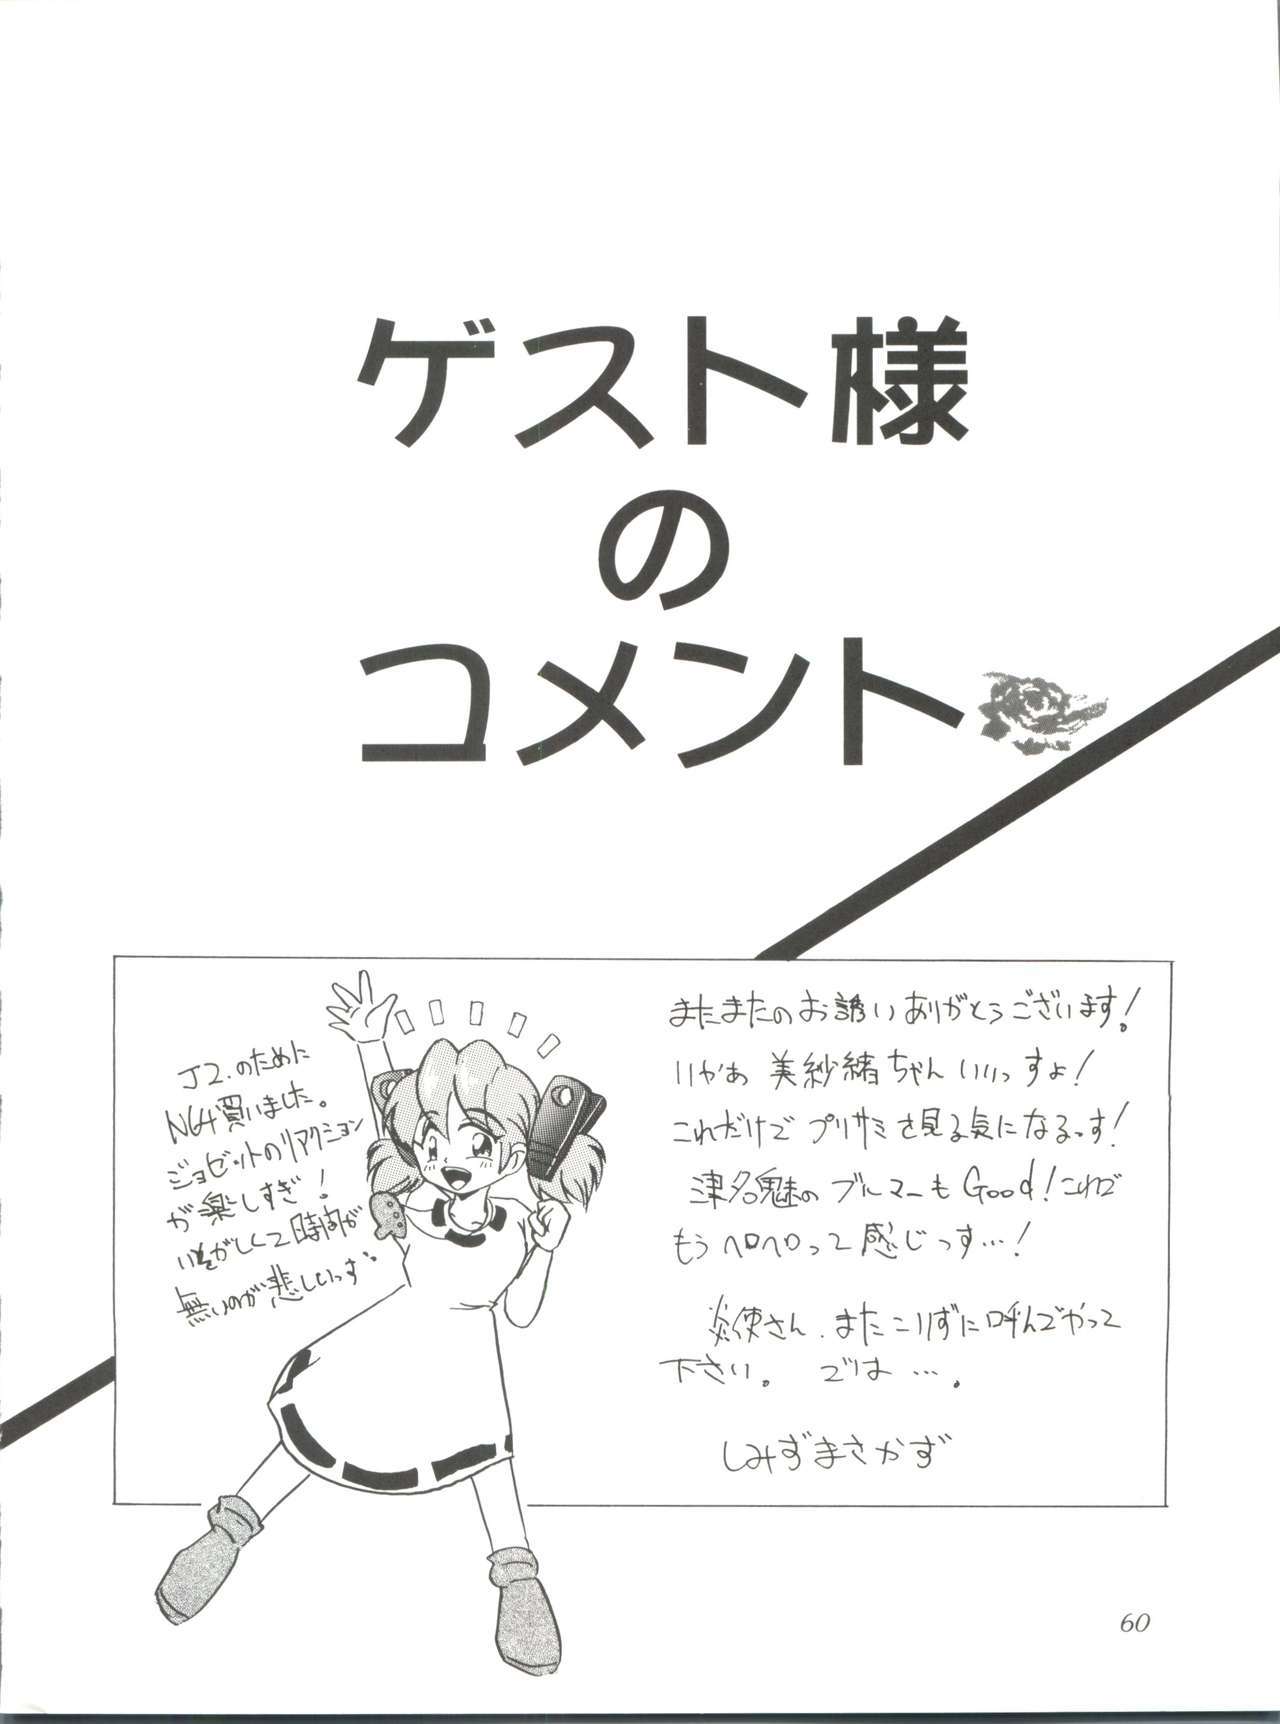 ゲスト様
の
コメント
J2.のために
N64買いました。
ジョゼットのリアクション
が楽しすぎ!
いそがしくて時間が
無いのが悲しいっす。
またまたのお誘いありがとうございます!
いやあ 美紗緒ちゃんいいっすよ!
これだけでプリサミを見る気になるっす!
津名魅のブルマーもGood!これで
もうヘロヘロって感じっす…!
炎使さん.またこりずに呼んでやって
下さい。 では….
しみずまさかず
60